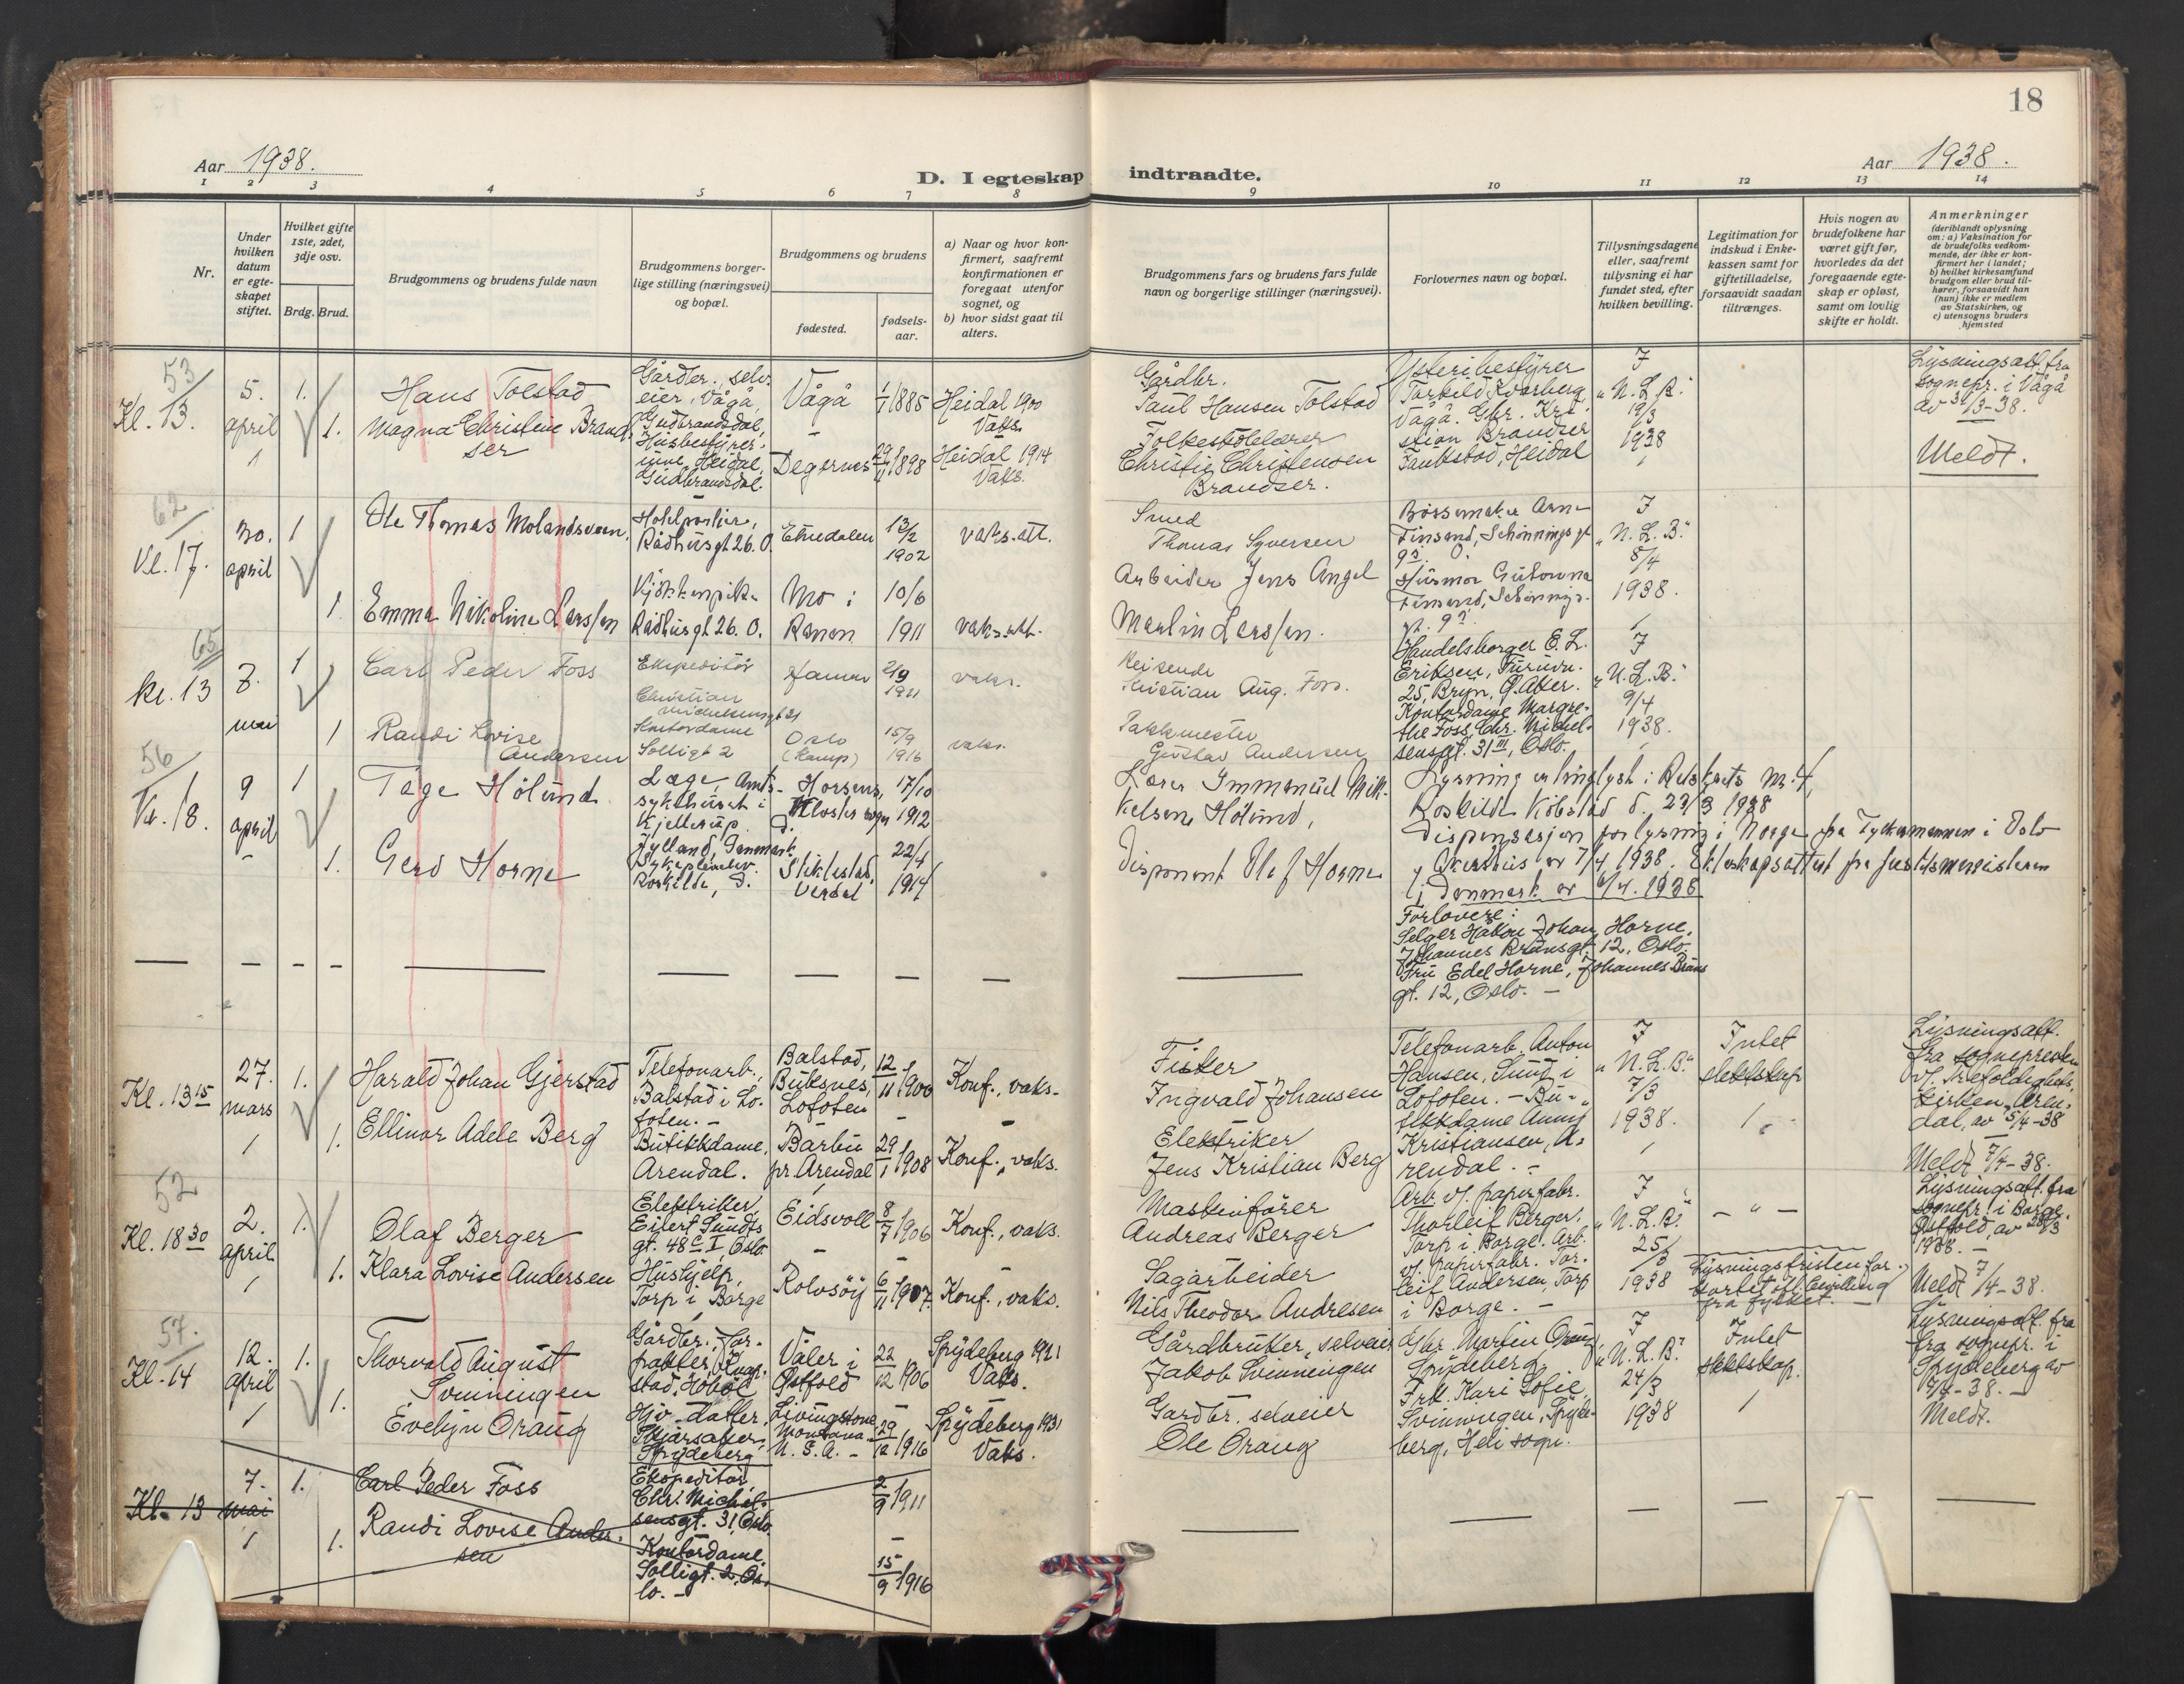 18
Aar 1938.
Aar 1938.
D. I egteskap indtraadte.
1 2 3 4 5 6 7 8 9 10 11 12 13 14
Nr.
Under hvilken datum er egteskapet stiftet.
Hvilket gifte 1ste, 2det, 3dje osv.
Brdg. Brud.
Brudgommens og brudens fulde navn
Brudgommens borgerlige stilling (næringsvei) og bopæl.
Brudgommens og brudens
fødested.
fødselsaar.
a) Naar og hvor konfirmert, saafremt konfirmationen er foregaat utenfor sognet, og
b) hvor sidst gaat til alters.
Brudgommens fars og brudens fars fulde navn og borgerlige stillinger (næringsvei).
Forlovernes navn og bopæl.
Tillysningsdagene eller, saafremt tillysning ei har fundet sted, efter hvilken bevilling.
Legitimation for indskud i Enkekassen samt for giftetilladelse, forsaavidt saadan tiltrænges.
Hvis nogen av brudefolkene har været gift før, hvorledes da det foregaaende egteskap er opløst, samt om lovlig skifte er holdt.
Anmerkninger (deriblandt oplysning om: a) Vaksination for de brudefolks vedkommende, der ikke er konfirmert her i landet; b) hvilket kirkesamfund brudgom eller brud tilhører, forsaavidt han (hun) ikke er medlem av Statskirken, og c) utensogns bruders hjemsted
53
Kl. 13.
5. april
1.
1.
Hans Tolstad
Magna Christine Brandser
Gårdbr., selveier, Vågå, Gudbrandsdal,
Husbestyrerinne, Heidal, Gudbrandsdal.
Vågå
1/1 1885
Heidal 1900
Vaks.
Degernes
29/11 1898
Heidal 1914
Vaks.
Gårdbr.
Paul Hansen Tolstad
Folkeskolelærer
Christie Christensen
Brandser.
Ysteribestyrer
Vågå. Gbr. Kristian Brandser
Heidal
I
"N. L. B."
19/3
1938
Lysningsatt. fra
sognepr. i Vågå
av 31/3-38.
Meldt.
62
Kl. 17.
30. april
1
1
Ole Thomas Molandsveen.
Emma Nikoline Larssen
Hotelportier,
Rådhusgt 26. O.
Kjøkkenpike
Rådhusgt 26. O.
Etnedalen
13/2
1902
vaks. att.
Mo i
Ranen
10/6
1911
vaks. att.
Smed
Thomas Syversen
Arbeider Jens Angel
Merlin Larssen.
Børsemaker Arne
Finsand, Schønningsgt
9 O.
Husmor
Finsand, Schønnings-
gt. 9
I
"N. L. B."
8/4
1938.
65
Kl. 13
7. mai
1
1
Carl Peder Foss
Randi Lovise
Andersen
Ekspeditør
Christian
Michelsensgt 31
Kontordame
Solligt 2
Hamar
2/9
1911
vaks.
Oslo
(Kamp)
15/9
1916
vaks.
Reisende
Kristian Aug. Foss.
Pakkmester
Gustav Andersen
Handelsborger E. L.
Eriksen,
25, Bryn, Ø. Aker.
Kontordame Margrethe Foss, Chr. Michelsensgt. 31 III, Oslo.
I
"N. L. B."
9/4
1938.
56
Kl. 18.
9 april
1
1.
Tage Hølund
Gerd Horne
Læge, Amtssykehuset i
Kjellerup.
Jylland, Danmark
Sykepleierske.
Roskilde, D.
Horsens,
Kloster sogn
D.
17/10
1912
Stiklestad,
Verdal
22/4
1914
Lærer Immanuel Mikkelsen Hølund,
Disponent Olaf Horne
Lysning er tinglyst i Retskrets Nr. 4,
Roskilde Købstad d. 23/3 1938
Dispensasjon for lysning i Norge fra Fylkesmannen i Oslo
og Akershus av 7/4, 1938. Ekteskapsattest fra justitsministeren
i Danmark av 6/4. 1938
Forlovere:
Selger Håkon Johan Horne,
Johannes Brunsgt. 12, Oslo.
Fru Edel Horne, Johannes Bruns
gt. 12, Oslo. –
Kl. 13 15
27. mars
1.
1.
Harald Johan Gjerstad
Ellinor Adele Berg
Telefonarb.,
Balstad i Lofoten. –
Butikkdame,
Arendal.
Balstad,
Buksnes,
Lofoten
12/11 1900
Konf., vaks.
Barbu
pr. Arendal
29/1 1908
Konf., vaks.
Fisker
Ingvald Johansen
Elektriker
Jens Kristian Berg
Telefonarb. Anton
Hansen, Sund i
Lofoten. – Butikkdame Anny
Kristiansen, Arendal. –
I
"N. L. B."
7/3
1938.
Intet
slektskap
Lysningsatt.
fra sognepresten
v/ Trefoldighetskirken, Arendal, av 5/4-38
Meldt 7/4-38.
52
Kl. 18 30
2. april
1.
1.
Olaf Berger
Klara Lovise Andersen
Elektriker,
Eilert Sundts
gt. 48 C I, Oslo
Hushjelp,
Torp i Borge
Eidsvoll
8/7 1906
Konf., vaks.
Rolvsøy
6/11 1907.
Konf., vaks.
Maskinfører
Andreas Berger
Sagarbeider
Nils Theodor Andresen
Arb. v/ papirfabr.
Thorleif Berger,
Torp i Borge. Arb.
v/ papirfabr. Torleif Andersen, Torp
i Borge. –
I
"N. L. B."
25/3
1938
– " –
Lysningsfristen forkortet ifl. bevilling
fra fylket. –
Lysningsatt. fra
sognepr. i Borge,
Østfold, av 28/3
1938. –
Meldt 7/4-38.
57.
Kl. 14
12. april
1.
1.
Thorvald August
Svinningen
Evelyn Oraug
Gårdbr., forpakter,
Hobøl
Gbr.-datter,
Spydeberg
Våler i
Østfold
22/12 1906
Spydeberg 1921
Vaks.
Livingstone
Montana
U. S. A. –
29/12 1916
Spydeberg 1931
Vaks.
Gårdbruker, selveier
Jakob Svinningen
Gardbr. selveier
Ole Oraug
Gbr. Martin Oraug,
Spydeberg.
Frk. Kari Sofie
Svinningen, Spydeberg, Heli sogn.
I
"N. L. B."
24/3
1938
Intet
slektskap.
Lysningsatt. fra
fra sognepr. i
Spydeberg av
-38. –
Meldt.
Kl. 13
7. mai
1.
1.
Carl Peder Foss
Randi Lovise Andersen
Ekspeditør,
Chr. Michelsensgt. 31, Oslo.
Kontordame,
Solligt. 2, Oslo. –
2/9 1911
15/9 1916